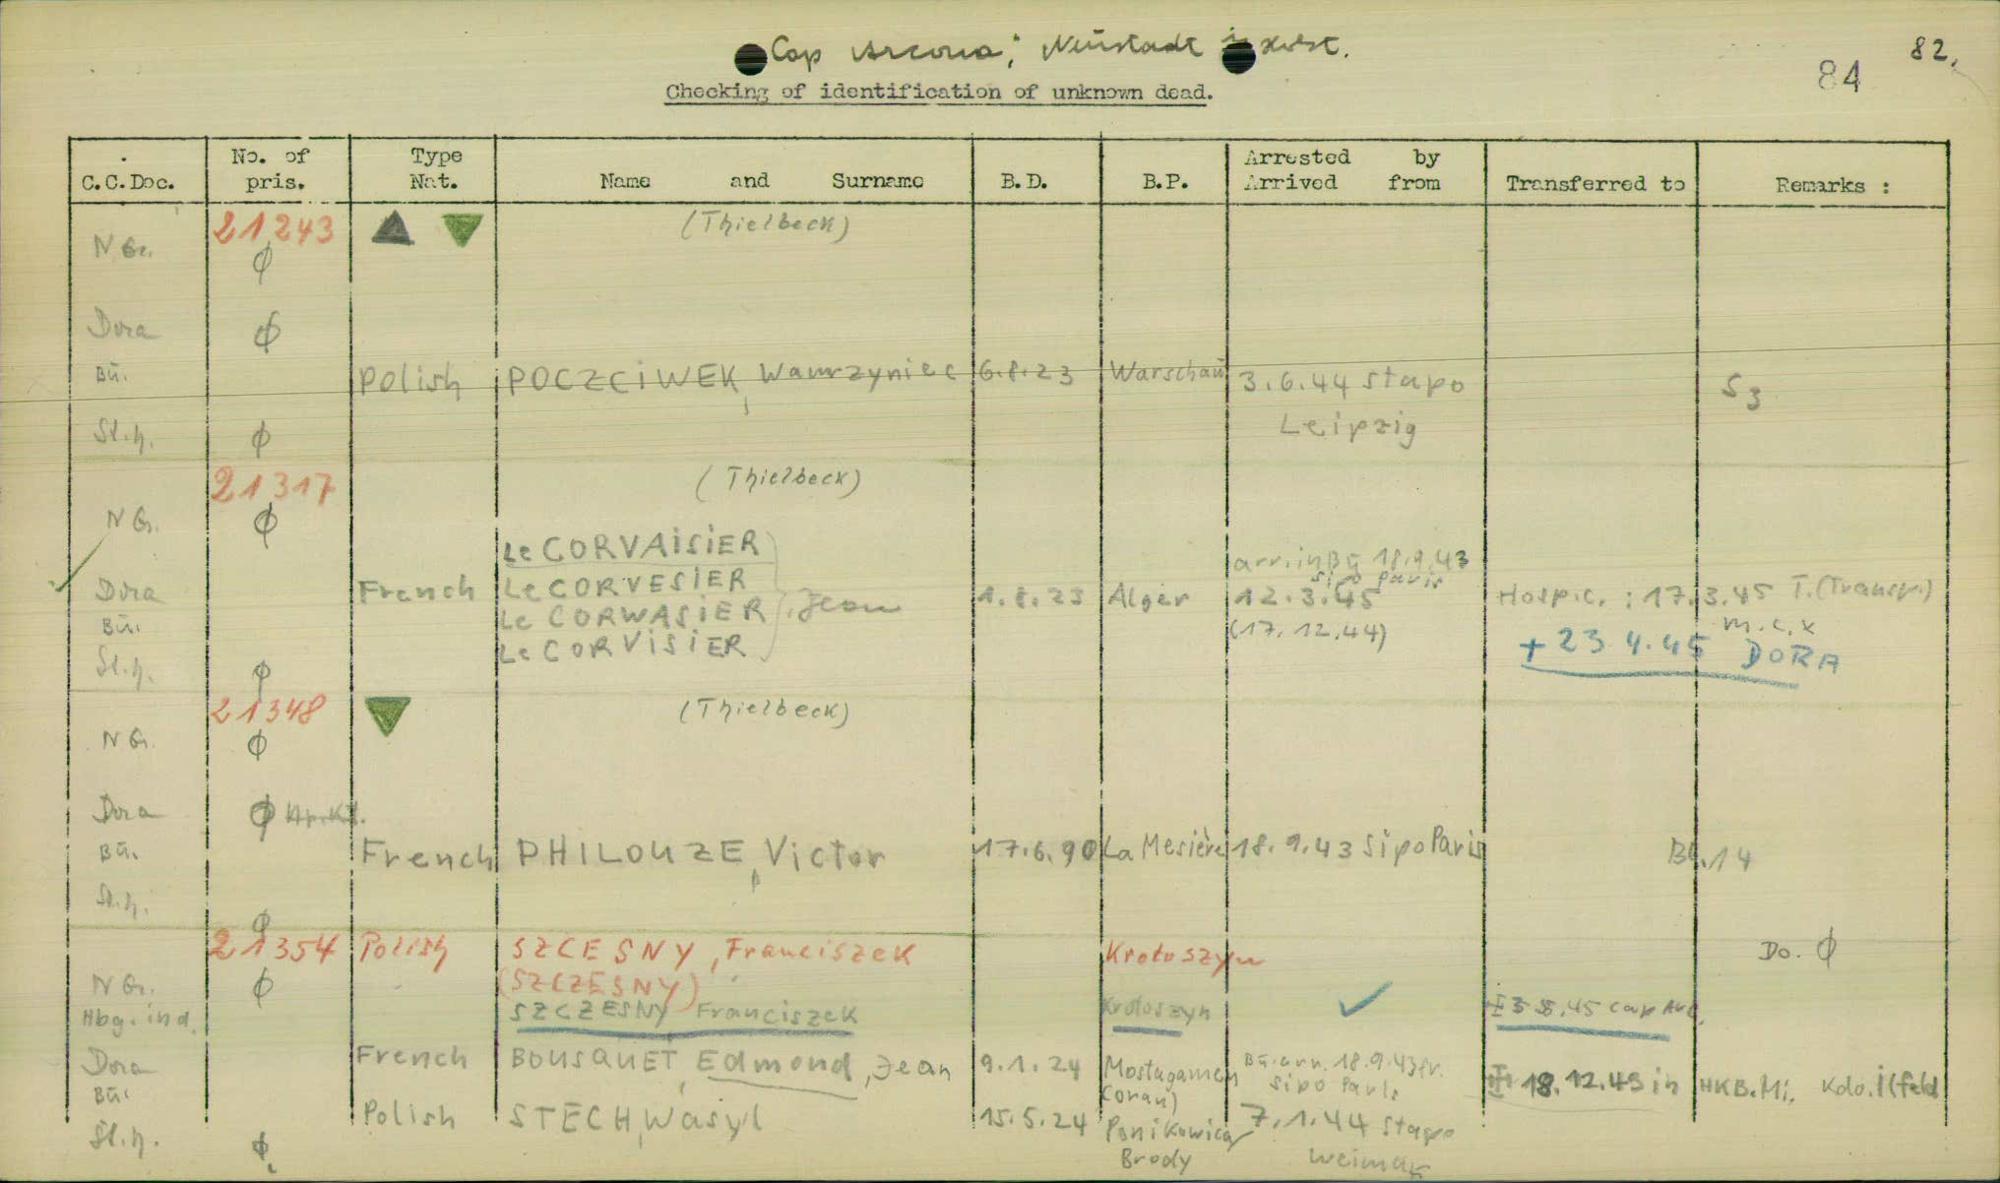 Cap Arcona; Neustadt i. Holst.
82.
84
Checking of identification of unknown dead.
C.C.Doc. No. of pris. Type Nat. Name and Surname B.D. B.P. Arrested by Arrived from Transferred to Remarks :
21243 (Thielbeck)
N Gr. ϕ
Dora ϕ
Bü. Polish POCZCiWEK, Wawrzyniec 6.8.23 Warschau 3.6.44 Stapo S3
St.h. ϕ Leipzig
21317 (Thielbeck)
N Gr. ϕ
Le CORVAiSiER arr. in Bü 18.9.43
Le CORVESiER Sipo Paris
Dora French Le CORWASiER , Jean 1.8.23 Alger 12.3.45 Hospic. : 17.3.45 T.(Transp.)
Bü. Le CORViSiER (17.12.44) m.c.x
St.h. ϕ + 23 4.45 DORA
21348 (Thielbeck)
N Gr. ϕ
Dora ϕ
Bü. French PHILOUZE, Victor 17.6.90 La Mesière 18.9.43 Sipo Paris Bl.14
St.h. ϕ
21354 Polish SZCESNY, Franciszek Krotoszyn Do. ϕ
N Gr. ϕ (SZCZESNY)
Hbg. ind. SZCZESNY Franciszek Krotoszyn ✓ 45 Cap Arc.
Dora French BOUSQUET, Edmond, Jean 9.1.24 Mostaganem (Oran) Bü. arr. 18.9.43 fr. Sipo Paris 18.12.43 in HKB.Mi. Kdo. Ilfeld
Bü. Polish STECH, Wasyl 15.5.24 Ponikowica 7.1.44 Stapo
St.h. ϕ Brody Weimar